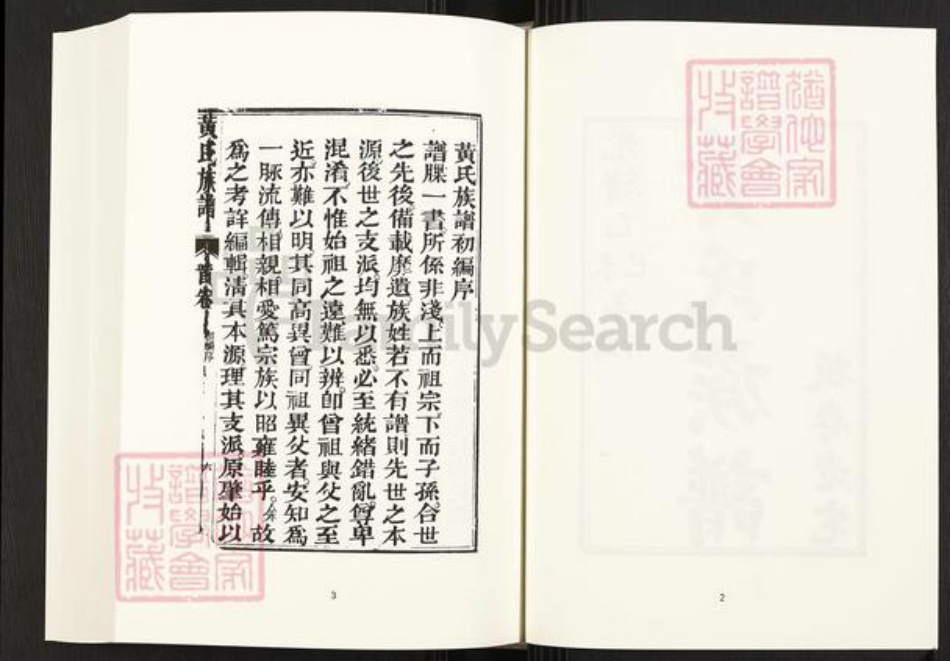 猶他家
譜學會
收藏
2
黃氏族譜初編序
譜牒一書。所係非淺。上而祖宗。下而子孫。合世
之先後。備載靡遺。族姓若不有譜則先世之本
源後世之支派。均無以悉。必至統緒錯亂。尊卑
混淆。不惟始祖之遠難以辨。卽曾祖與父之至
近。亦難以明。其同高異曾。同祖異父者。安知爲
一脈流傳。相親相愛篤宗族以昭雍睦乎。故
爲之考詳編輯。清其本源理其支派。原肇始以
黃氏族譜
首卷
猶他家
譜學會
收藏
3
FamilySearch